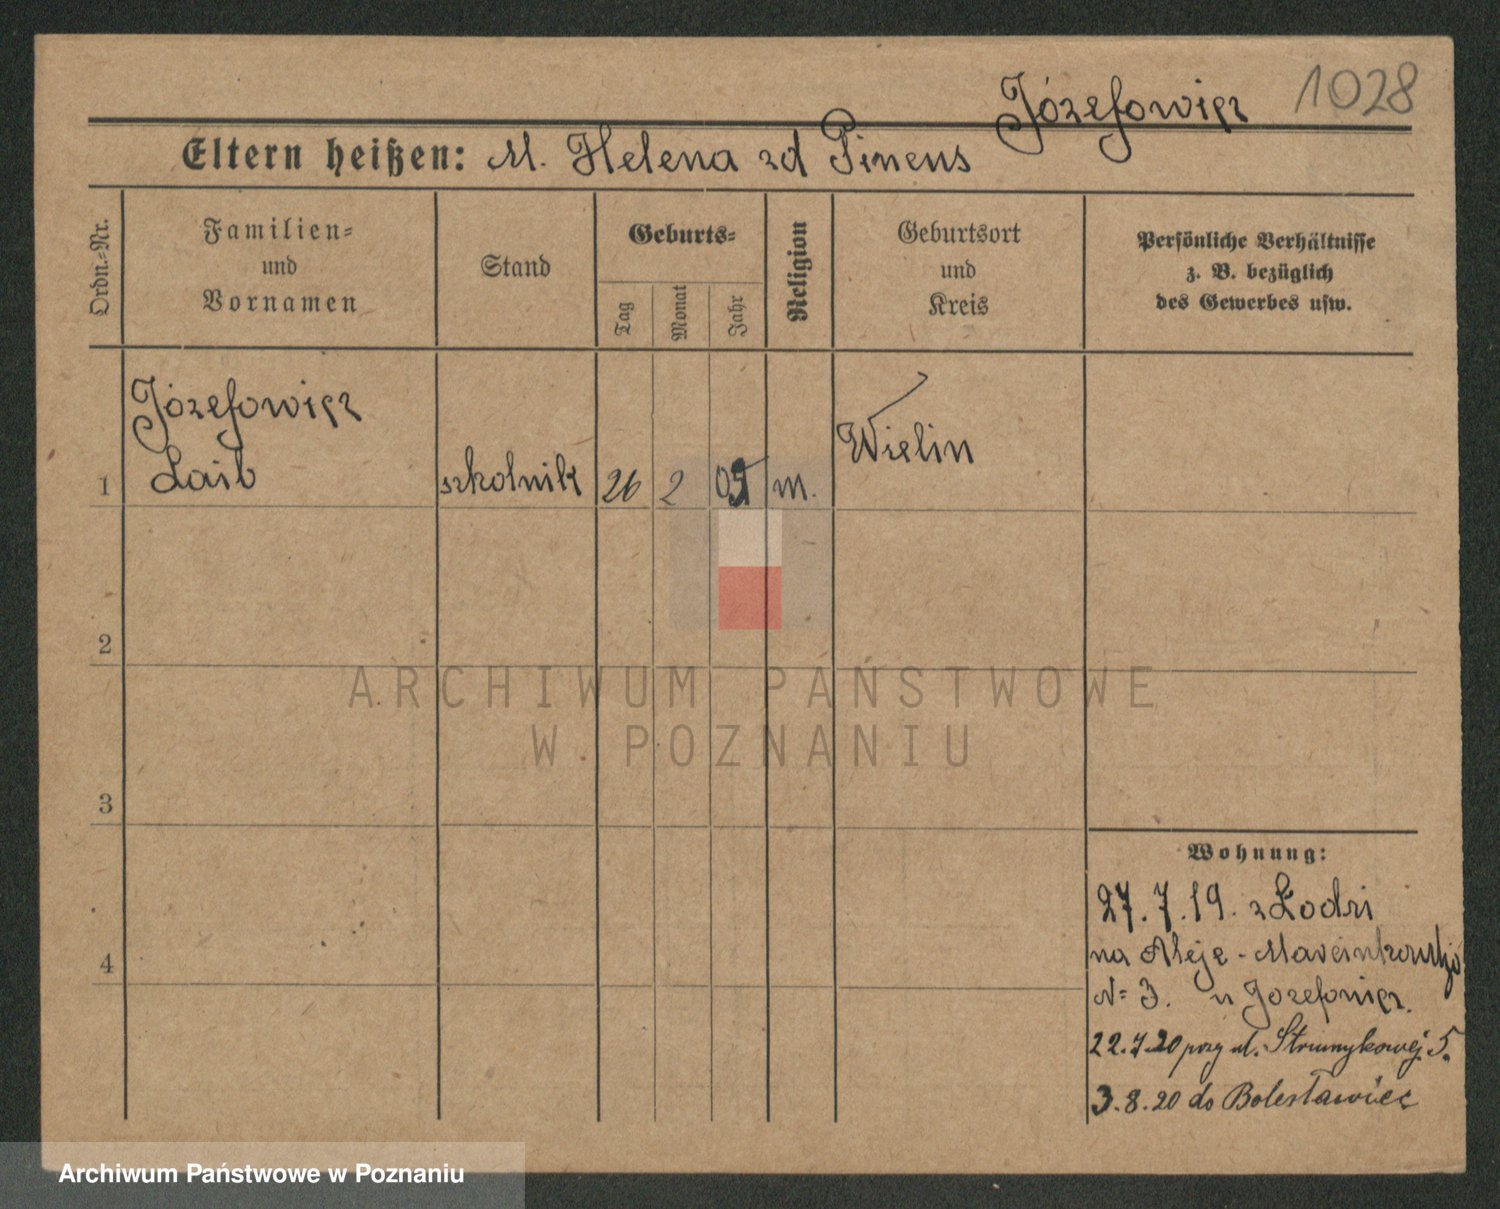 1028
Józefowicz
Eltern heißen: M. Helena zd Pineus
Ordn.-Nr.
Familien-
und
Vornamen
Stand
Geburts-
Tag
Monat
Jahr
Religion
Geburtsort
und
Kreis
Persönliche Verhältnisse
z. B. bezüglich
des Gewerbes usw.
Józefowicz
1 Laib szkolnik 26 2 05 m. Wielin
2
3
4
Wohnung:
27.7.19. z Łodzi
na Aleje - Marcinkowskiego
N= 3. u Jozefowicz.
22.7.20 przy ul. Strumykowej 5.
3.8.20 do Bolesławiec
ARCHIWUM PAŃSTWOWE
W POZNANIU
Archiwum Państwowe w Poznaniu